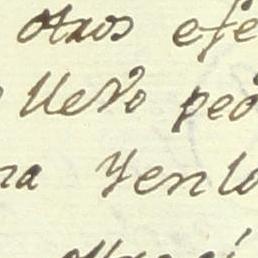 otros efe
llevo peo
na Yenlo